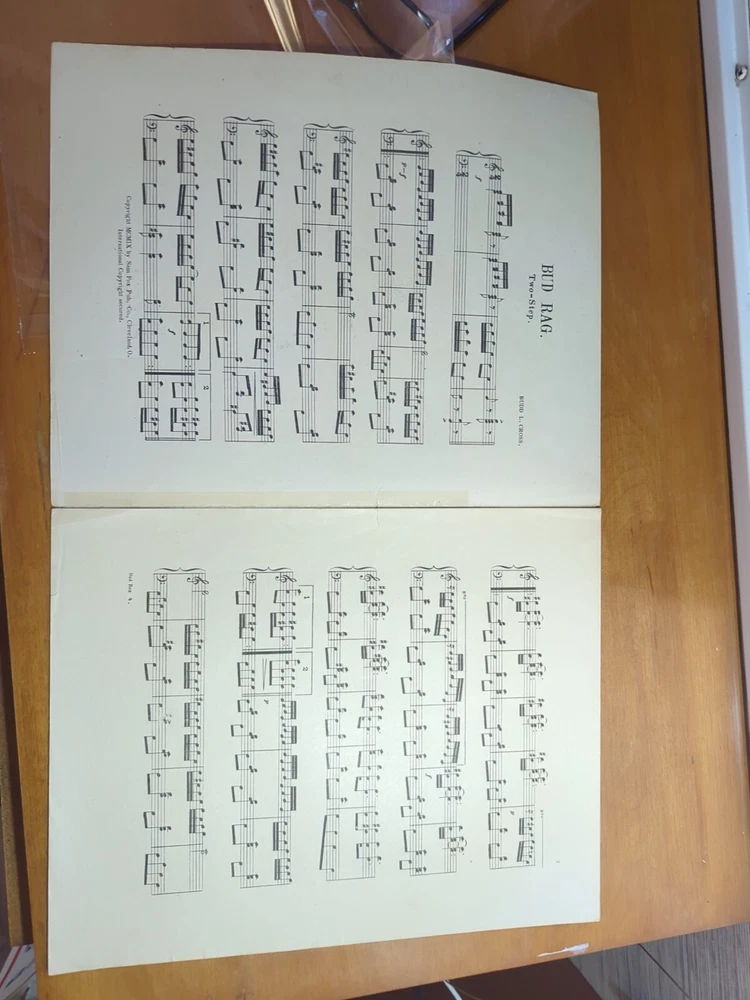 BUD RAG.
Two-Step.
BUDD L. CROSS.
f
p-f
1
2
f
Copyright MCMIX by Sam Fox Pub. Co., Cleveland, O.
International Copyright secured.
f
8va
p
8va
f
1
2
p
Bud Rag 4.